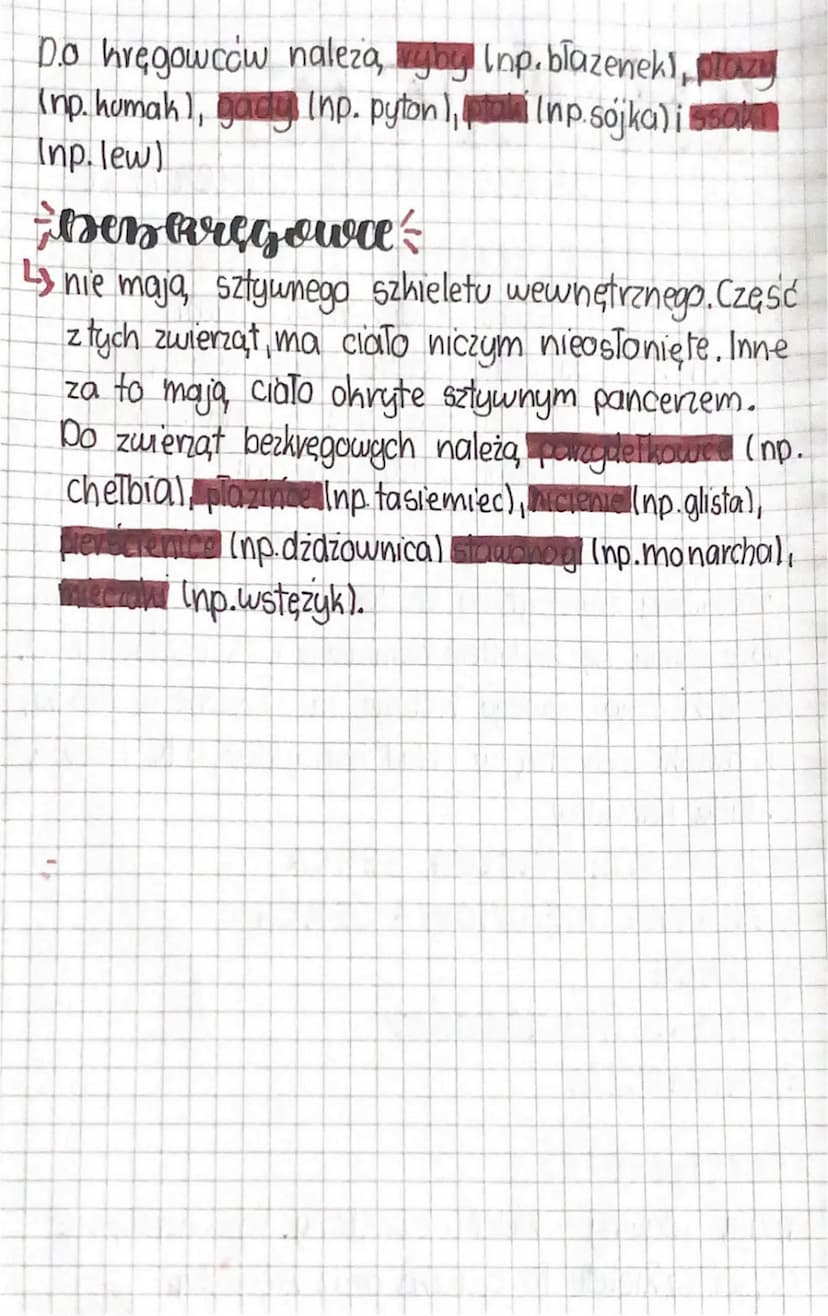 Do kręgowców należą ryby (np. błazenek), płazy
(np. kumak), gady (np. pyton), ptaki (np. sójka) i ssaki
(np. lew)
bezkręgowce
↳ nie mają sztywnego szkieletu wewnętrznego. Część
z tych zwierząt, ma ciało niczym nieosłonięte. Inne
za to mają ciało okryte sztywnym pancerzem.
Do zwierząt bezkręgowych należą parzydełkowce (np.
chełbia), płazińce (np. tasiemiec), nicienie (np. glista),
pierścienice (np. dżdżownica) stawonogi (np. monarcha),
mięczaki (np. wstężyk).